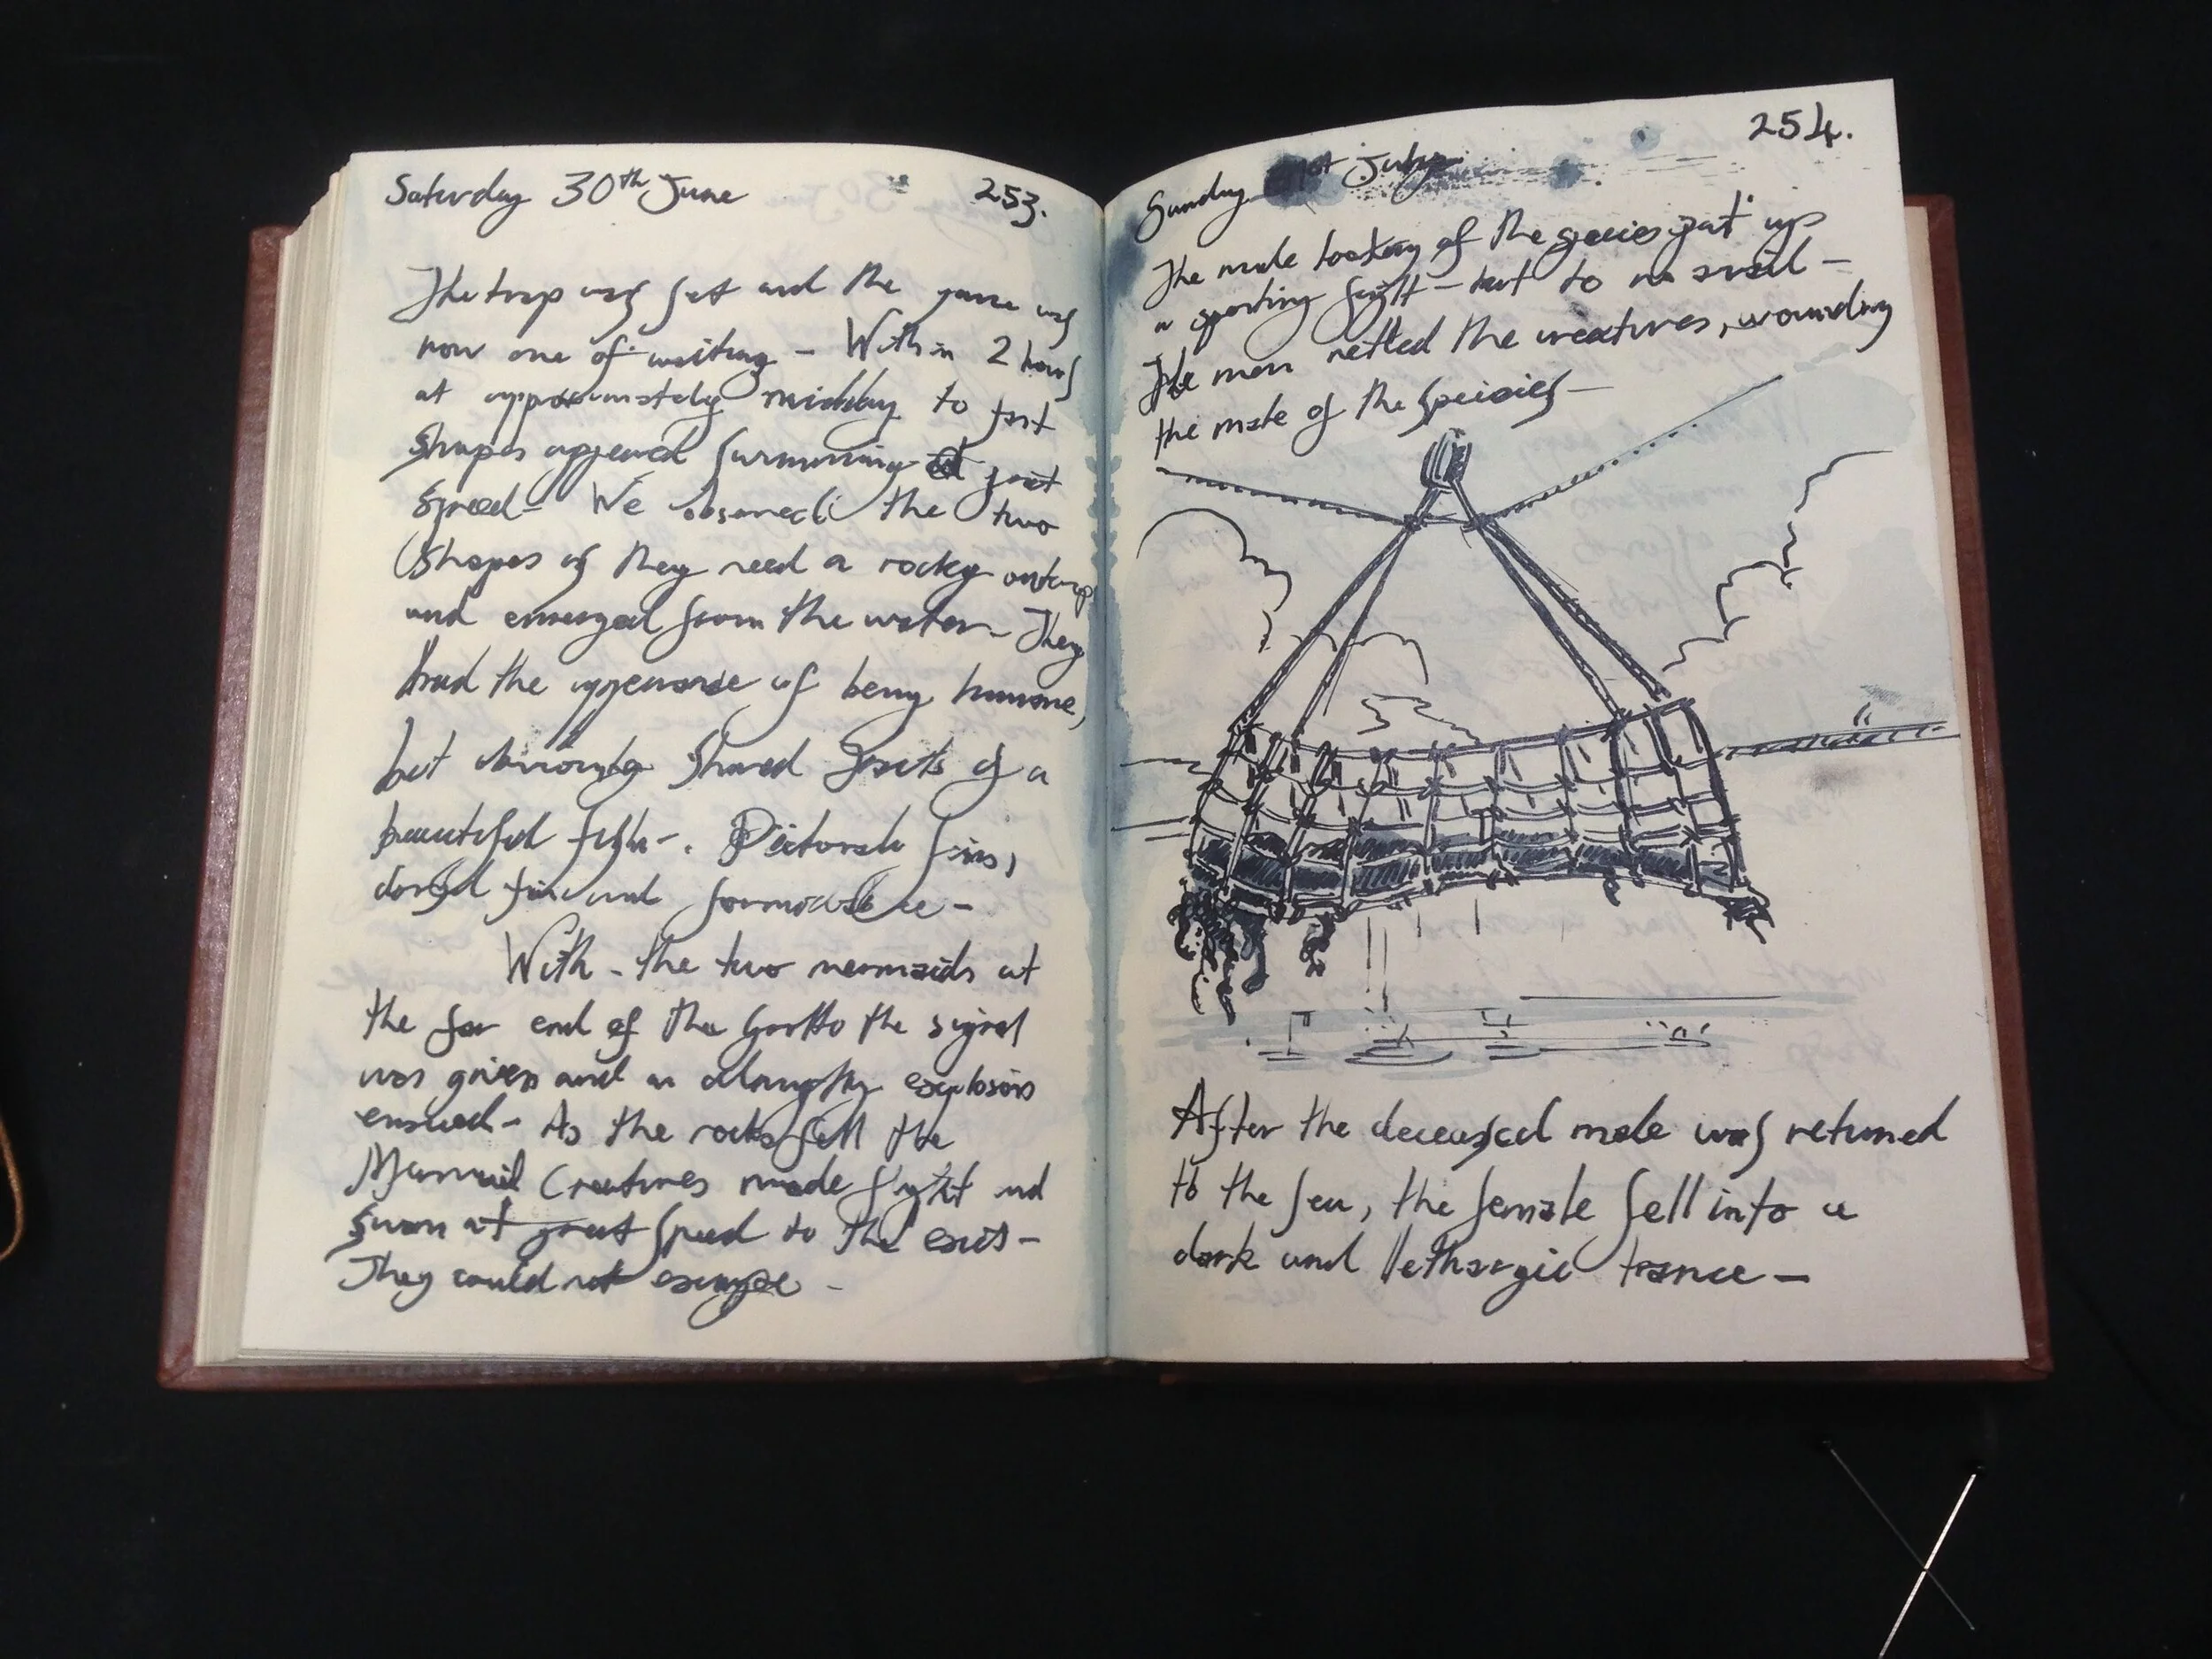 Saturday 30th June
253.
The trap was set and the game was
now one of waiting - Within 2 hours
at approximately midday to fast
shapes appeared swimming at great
speed - We observed the two
shapes as they need a rocky outcrop
and emerged from the water - They
had the appearance of being humane,
but obviously shared traits of a
beautiful fish -. Pictorals fins,
dorsal fin and
With - the two mermaids at
the far end of the Grotto the signal
was given and an almighty explosion
ensued - As the rocks fell the
Mermaid Creatures made flight and
swam at great speed to the exits -
They could not escape -
254.
Sunday 1st July
The male looking of the species put up
a sporting fight - but to no avail -
The men netted the creatures, wounding
the male of the species -
After the deceased male was returned
to the sea, the female fell into a
dark and lethargic trance -